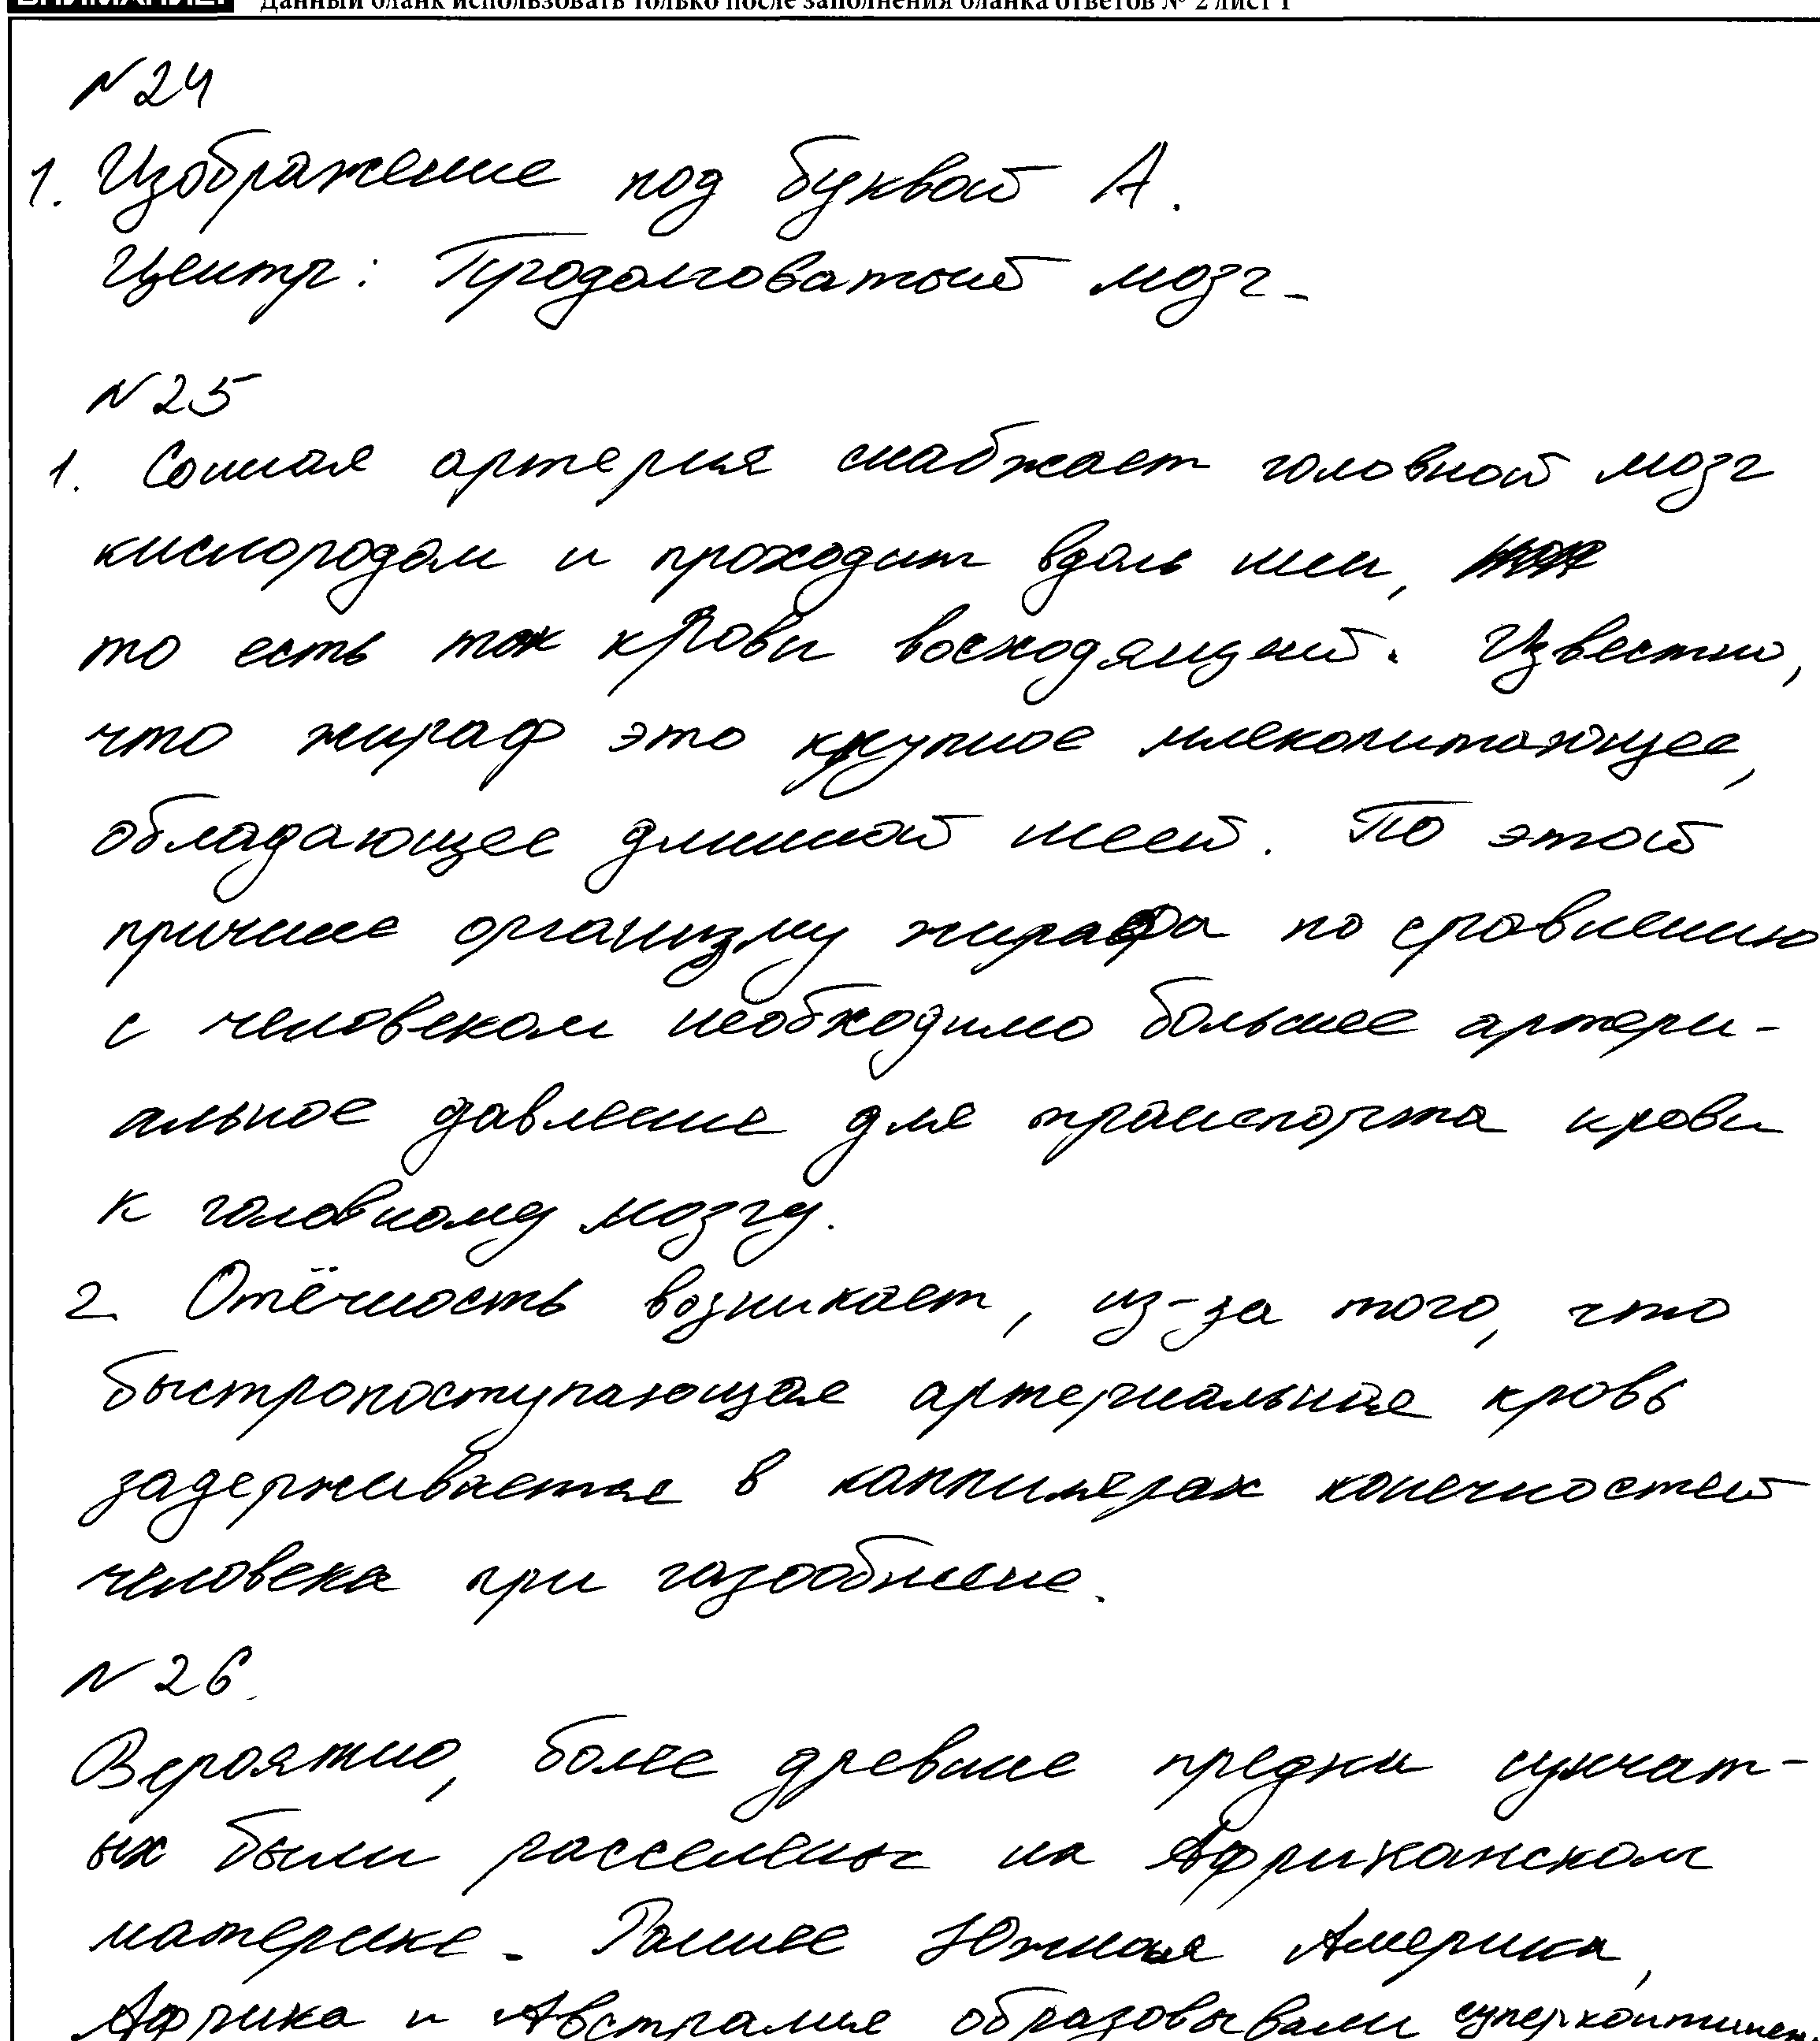 ВНИМАНИЕ! Данный бланк использовать только после заполнения бланка ответов № 2 лист 1
№24
1. Изображение под буквой А.
Центр: Продолговатый мозг.
№25
1. Сонная артерия снабжает головной мозг
кислородом и проходит вдоль шеи,
то есть ток крови восходящий. Известно,
что жираф это крупное млекопитающее,
обладающее длинной шеей. По этой
причине организму жирафа по сравнению
с человеком необходимо большее артери-
альное давление для транспорта крови
к головному мозгу.
2. Отёчность возникает, из-за того, что
быстропоступающая артериальная кровь
задерживается в каппилярах конечностей
человека при газообмене.
№26.
Вероятно, более древние предки сумчат-
ых были расселены на Африканском
материке. Раннее Южная Америка,
Африка и Австралия образовывали суперконтинен